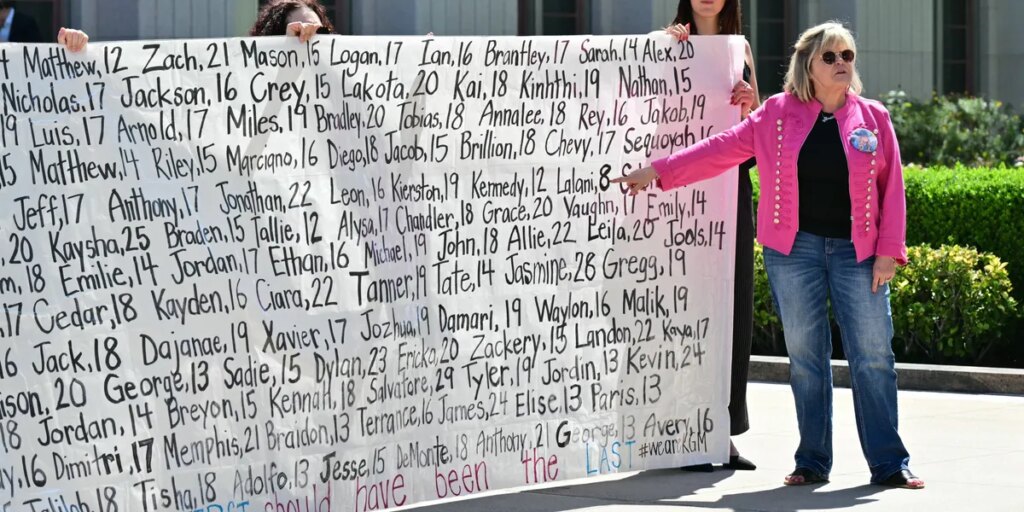 4 Matthew, 12 Zach, 21 Mason, 15 Logan, 17 Ian, 16 Brantley, 17 Sarah, 14 Alex, 20
Nicholas, 17 Jackson, 16 Crey, 15 Lakota, 20 Kai, 18 Kinhthi, 19 Nathan, 15
19 Luis, 17 Arnold, 17 Miles, 19 Bradley, 20 Tobias, 18 Annalee, 18 Rey, 16 Jakob, 19
15 Matthew, 14 Riley, 15 Marciano, 16 Diego, 18 Jacob, 15 Brillion, 18 Chevy, 17 Sequoyah 16
Jeff, 17 Anthony, 17 Jonathan, 22 Leon, 16 Kierston, 19 Kennedy, 12 Lalani, 8
20 Kaysha, 25 Braden, 15 Tallie, 12 Alysa, 17 Chandler, 18 Grace, 20 Vaughn, 17 Emily, 14
18 Emilie, 14 Jordan, 17 Ethan, 16 Michael, 19 John, 18 Allie, 22 Leila, 20 Jools, 14
17 Cedar, 18 Kayden, 16 Ciara, 22 Tanner, 19 Tate, 14 Jasmine, 28 Gregg, 19
16 Jack, 18 Dajanae, 19 Xavier, 17 Jozhua, 19 Damari, 19 Waylon, 16 Malik, 19
20 George, 13 Sadie, 15 Dylan, 23 Ericka, 20 Zackery, 15 Landon, 22 Kaya, 17
18 Jordan, 14 Breyon, 15 Kennah, 18 Salvatore, 29 Tyler, 19 Jordin, 13 Kevin, 24
16 Dimitri, 17 Memphis, 21 Braidon, 13 Terrance, 16 James, 24 Elise, 13 Paris, 13
18 Tisha, 18 Adolfo, 13 Jesse, 15 DeMonte, 18 Anthony, 21 George, 13 Avery, 16
should have been the LAST #weareKGM